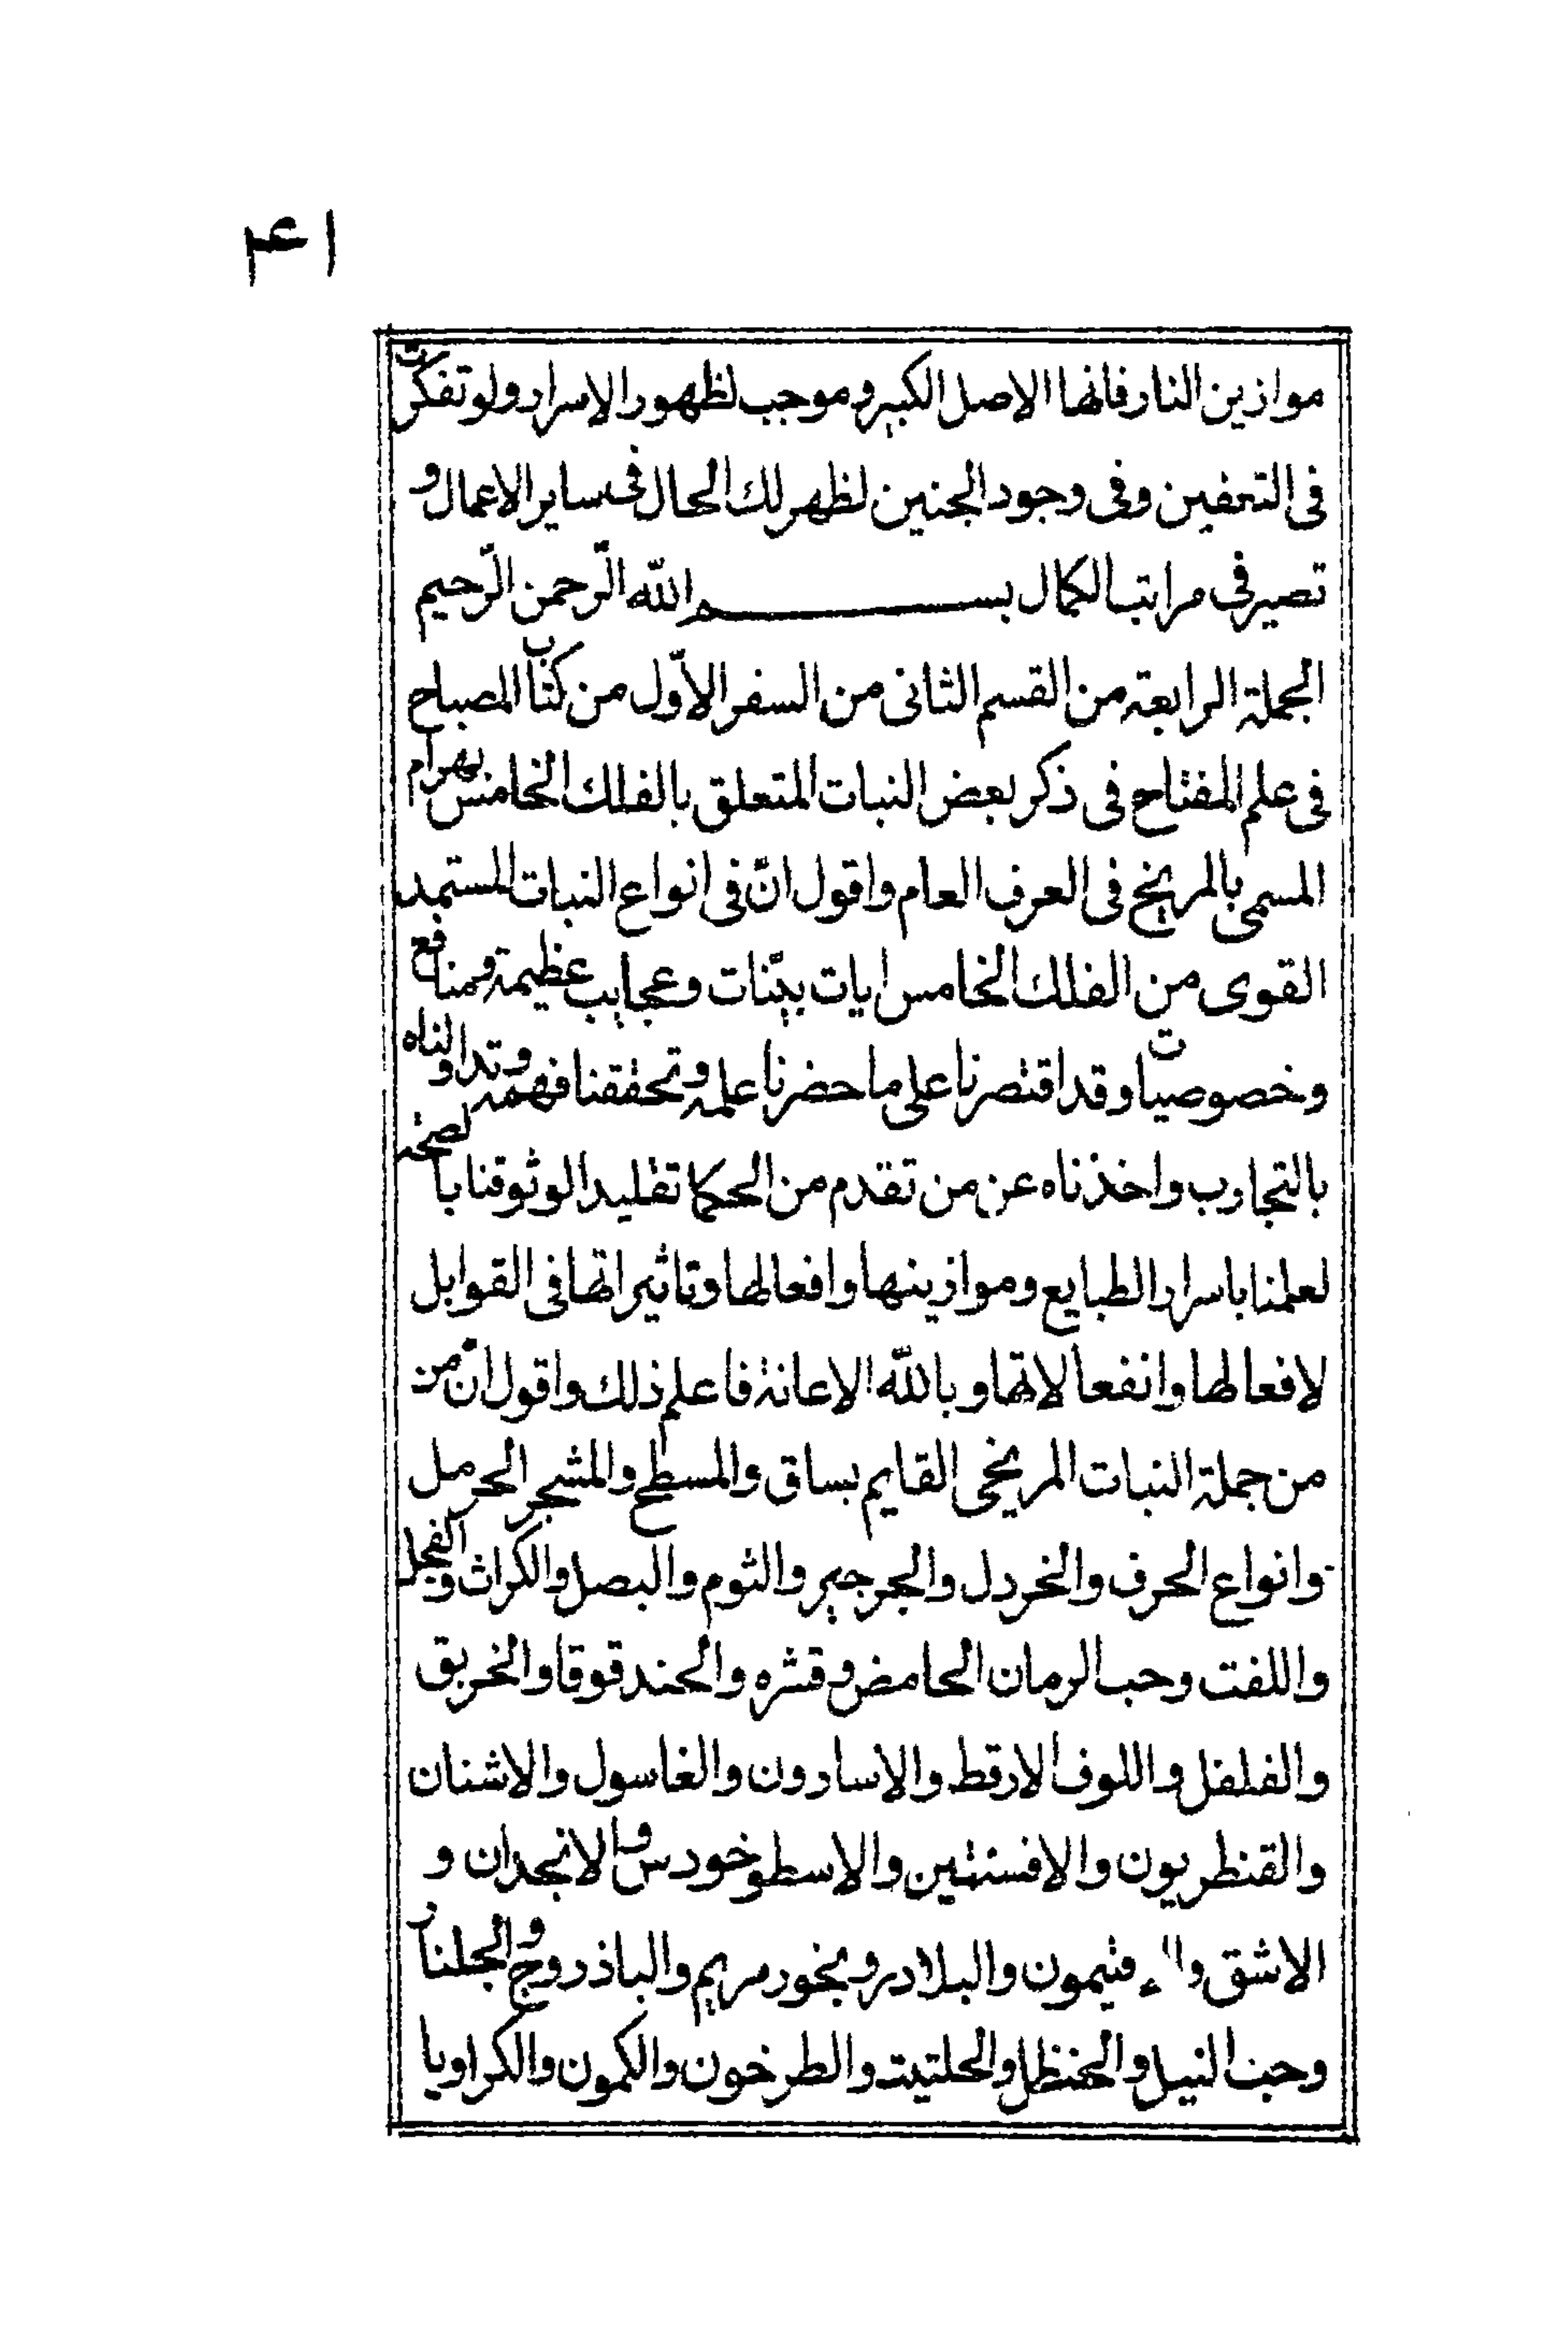 ١٤٣
موازين النار فانها الاصل الكبير وموجب لظهور الاسرار ولو تفكرت
فى التعفين وفى وجود الجنين لظهر لك الحال فى ساير الاعمال و
تصير فى مراتب الكمال بسم الله الرّحمن الرّحيم
الجملة الرابعة من القسم الثانى من السفر الاوّل من كتاب المصباح
فى علم المفتاح فى ذكر بعض النبات المتعلق بالفلك الخامس بهرام
المسمى بالمريخ فى العرف العام واقول انّ فى انواع النبات المستمد
القوى من الفلك الخامس ايات بيّنات وعجايب عظيمة ومنافع
وخصوصيات وقد اقتصرنا على ما حضرنا علمه وتحققنا فهمه وتداولناه
بالتجارب واخذناه عن من تقدم من الحكما تقليدا لوثوقنا با لصحة
لعلمنا باسرار الطبايع وموازينها وافعالها وتاثيراتها فى القوابل
لافعالها وانفعالاتها وبالله الاعانة فاعلم ذلك واقول انّ من
من جملة النبات المريخى القايم بساق والمسطح والمشجر الحرمل
وانواع الحرف والخردل والجرجير والثوم والبصل والكراث والفجل
واللفت وحب الرمان الحامض وقشره والحندقوقا والخربق
والفلفل واللوف الارقط والاسارون والغاسول والاشنان
والقنطريون والافسنتين والاسطوخودس والانجدان و
الاشق والافتيمون والبلادر وبخور مريم والباذروج والجلنار
وحب النيل والحنظل والحلتيت والطرخون والكمون والكراويا